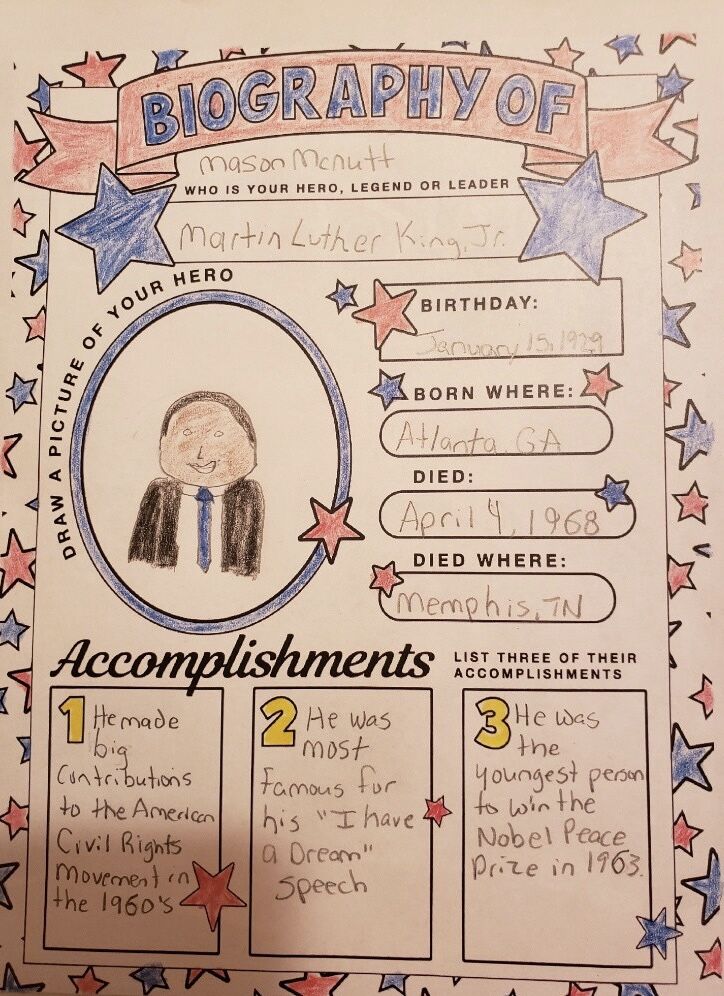 BIOGRAPHY OF
Mason Mcnutt
WHO IS YOUR HERO, LEGEND OR LEADER
Martin Luther King, Jr.
DRAW A PICTURE OF YOUR HERO
BIRTHDAY:
January 15, 1929
BORN WHERE:
Atlanta, GA
DIED:
April 4, 1968
DIED WHERE:
Memphis, TN
Accomplishments
LIST THREE OF THEIR
ACCOMPLISHMENTS
1 He made
big
Contributions
to the American
Civil Rights
movement in
the 1960's
2 He was
most
famous for
his "I have
a Dream"
speech
3 He was
the
youngest person
to win the
Nobel Peace
Prize in 1963.